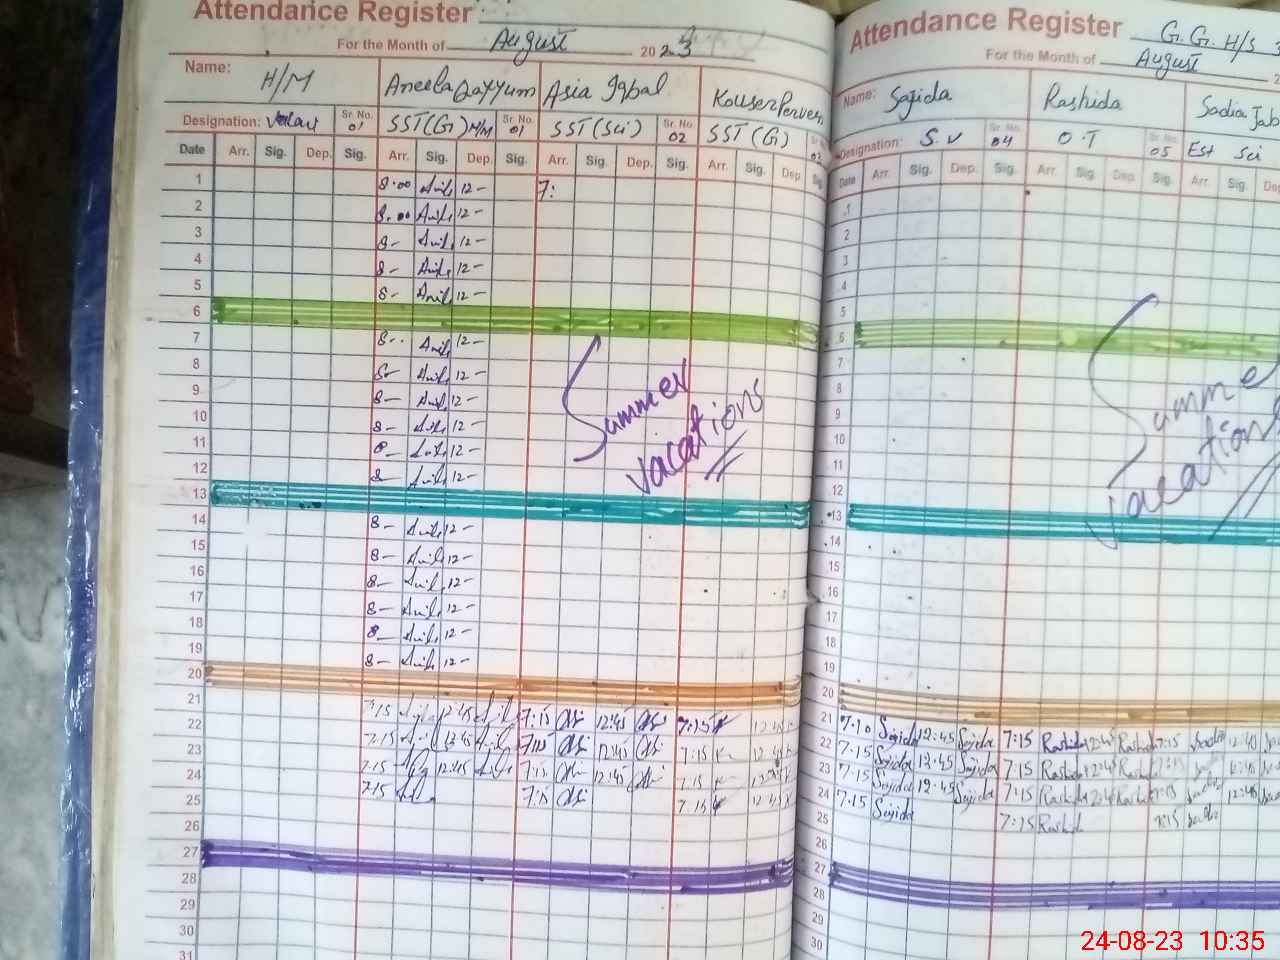 Attendance Register
For the Month of August 2023
Name: H/M Aneela Qayyum Asia Iqbal Kouser Perveen
Designation: Sr. No. 01 SST(G) H/M Sr. No. 01 SST (Sci) Sr. No. 02 SST (G) Sr. No.
Date Arr. Sig. Dep. Sig. Arr. Sig. Dep. Sig. Arr. Sig. Dep. Sig. Arr. Sig. Dep. Sig.
1 8.00 12- 7:
2 8.00 12-
3 8- 12-
4 8- 12-
5 8- 12-
6
7 8- 12-
8 8- 12-
9 8- 12-
10 8- 12-
11 8- 12-
12 8- 12-
Summer
vacations
13
14 8- 12-
15 8- 12-
16 8- 12-
17 8- 12-
18 8- 12-
19 8- 12-
20
21 7:15 12:45 7:15 12:45 7:15 12:45
22 7:15 12:45 7:15 12:45 7:15 12:45
23 7:15 12:45 7:15 12:45 7:15
24 7:15 7:15 7:15 12:45
25
26
27
28
29
30
31
Attendance Register G.G. H/S
For the Month of August
Name: Sajida Rashida Sadia Jab
Designation: S.V Sr. No. 04 O.T Sr. No. 05 Est Sci
Date Arr. Sig. Dep. Sig. Arr. Sig. Dep. Sig. Arr. Sig. Dep.
1
2
3
4
5
6
7
8
9
10
11
12
Summe
vacation
13
14
15
16
17
18
19
20
21 7:10 Sajida 12:45 Sajida 7:15 Rashida 12:45 Rashida 7:15 12:40
22 7:15 Sajida 12:45 Sajida 7:15 Rashida 12:45 Rashida 7:15 12:45
23 7:15 Sajida 12:45 Sajida 7:15 Rashida 12:45 Rashida 7:15 12:45
24 7:15 Sajida 7:15 Rashid 7:15
25
26
27
28
29
30
24-08-23 10:35